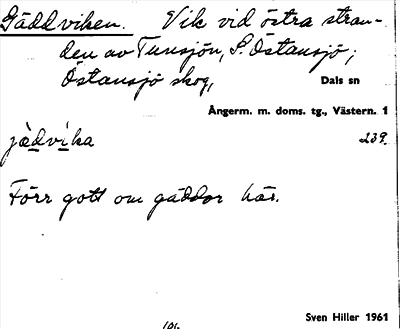 Gäddviken. Vik vid östra stran-
den av Tunsjön, S. Östansjö;
Östansjö skog,
Dals sn
Ångerm. m. doms. tg., Västern. 1
jädvika
239.
Förr gott om gäddor här.
Sven Hiller 1961